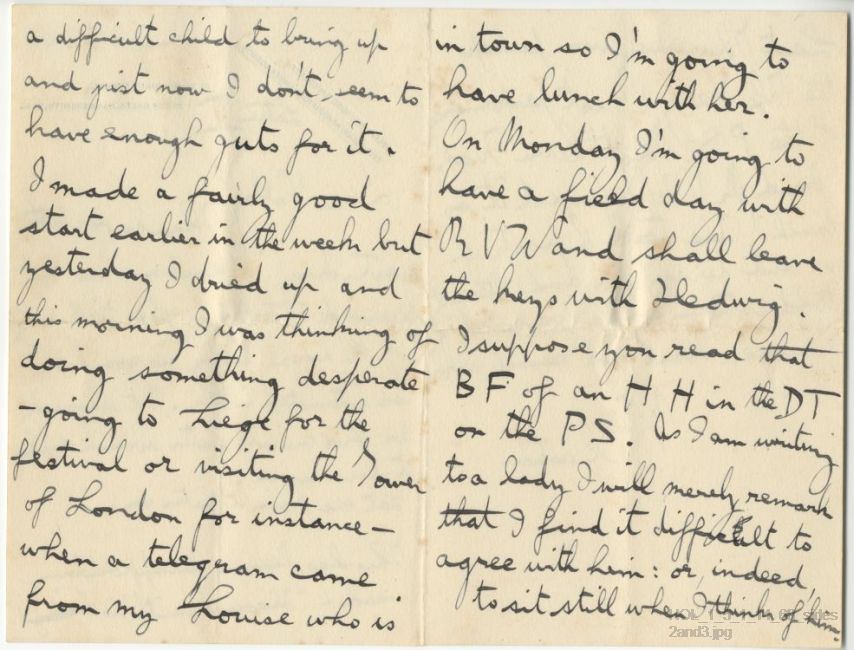 a difficult child to bring up
and just now I don't seem to
have enough guts for it.
I made a fairly good
start earlier in the week but
yesterday I dried up and
this morning I was thinking of
doing something desperate
– going to Liège for the
festival or visiting the Tower
of London for instance –
when a telegram came
from my Louise who is
in town so I'm going to
have lunch with her.
On Monday I'm going to
have a field day with
R V W and shall leave
the keys with Hedwig.
I suppose you read that
BF of an H H in the DT
on the PS. As I am writing
to a lady I will merely remark
that I find it difficult to
agree with him: or, indeed,
to sit still when I think of him.
sides
2and3.jpg